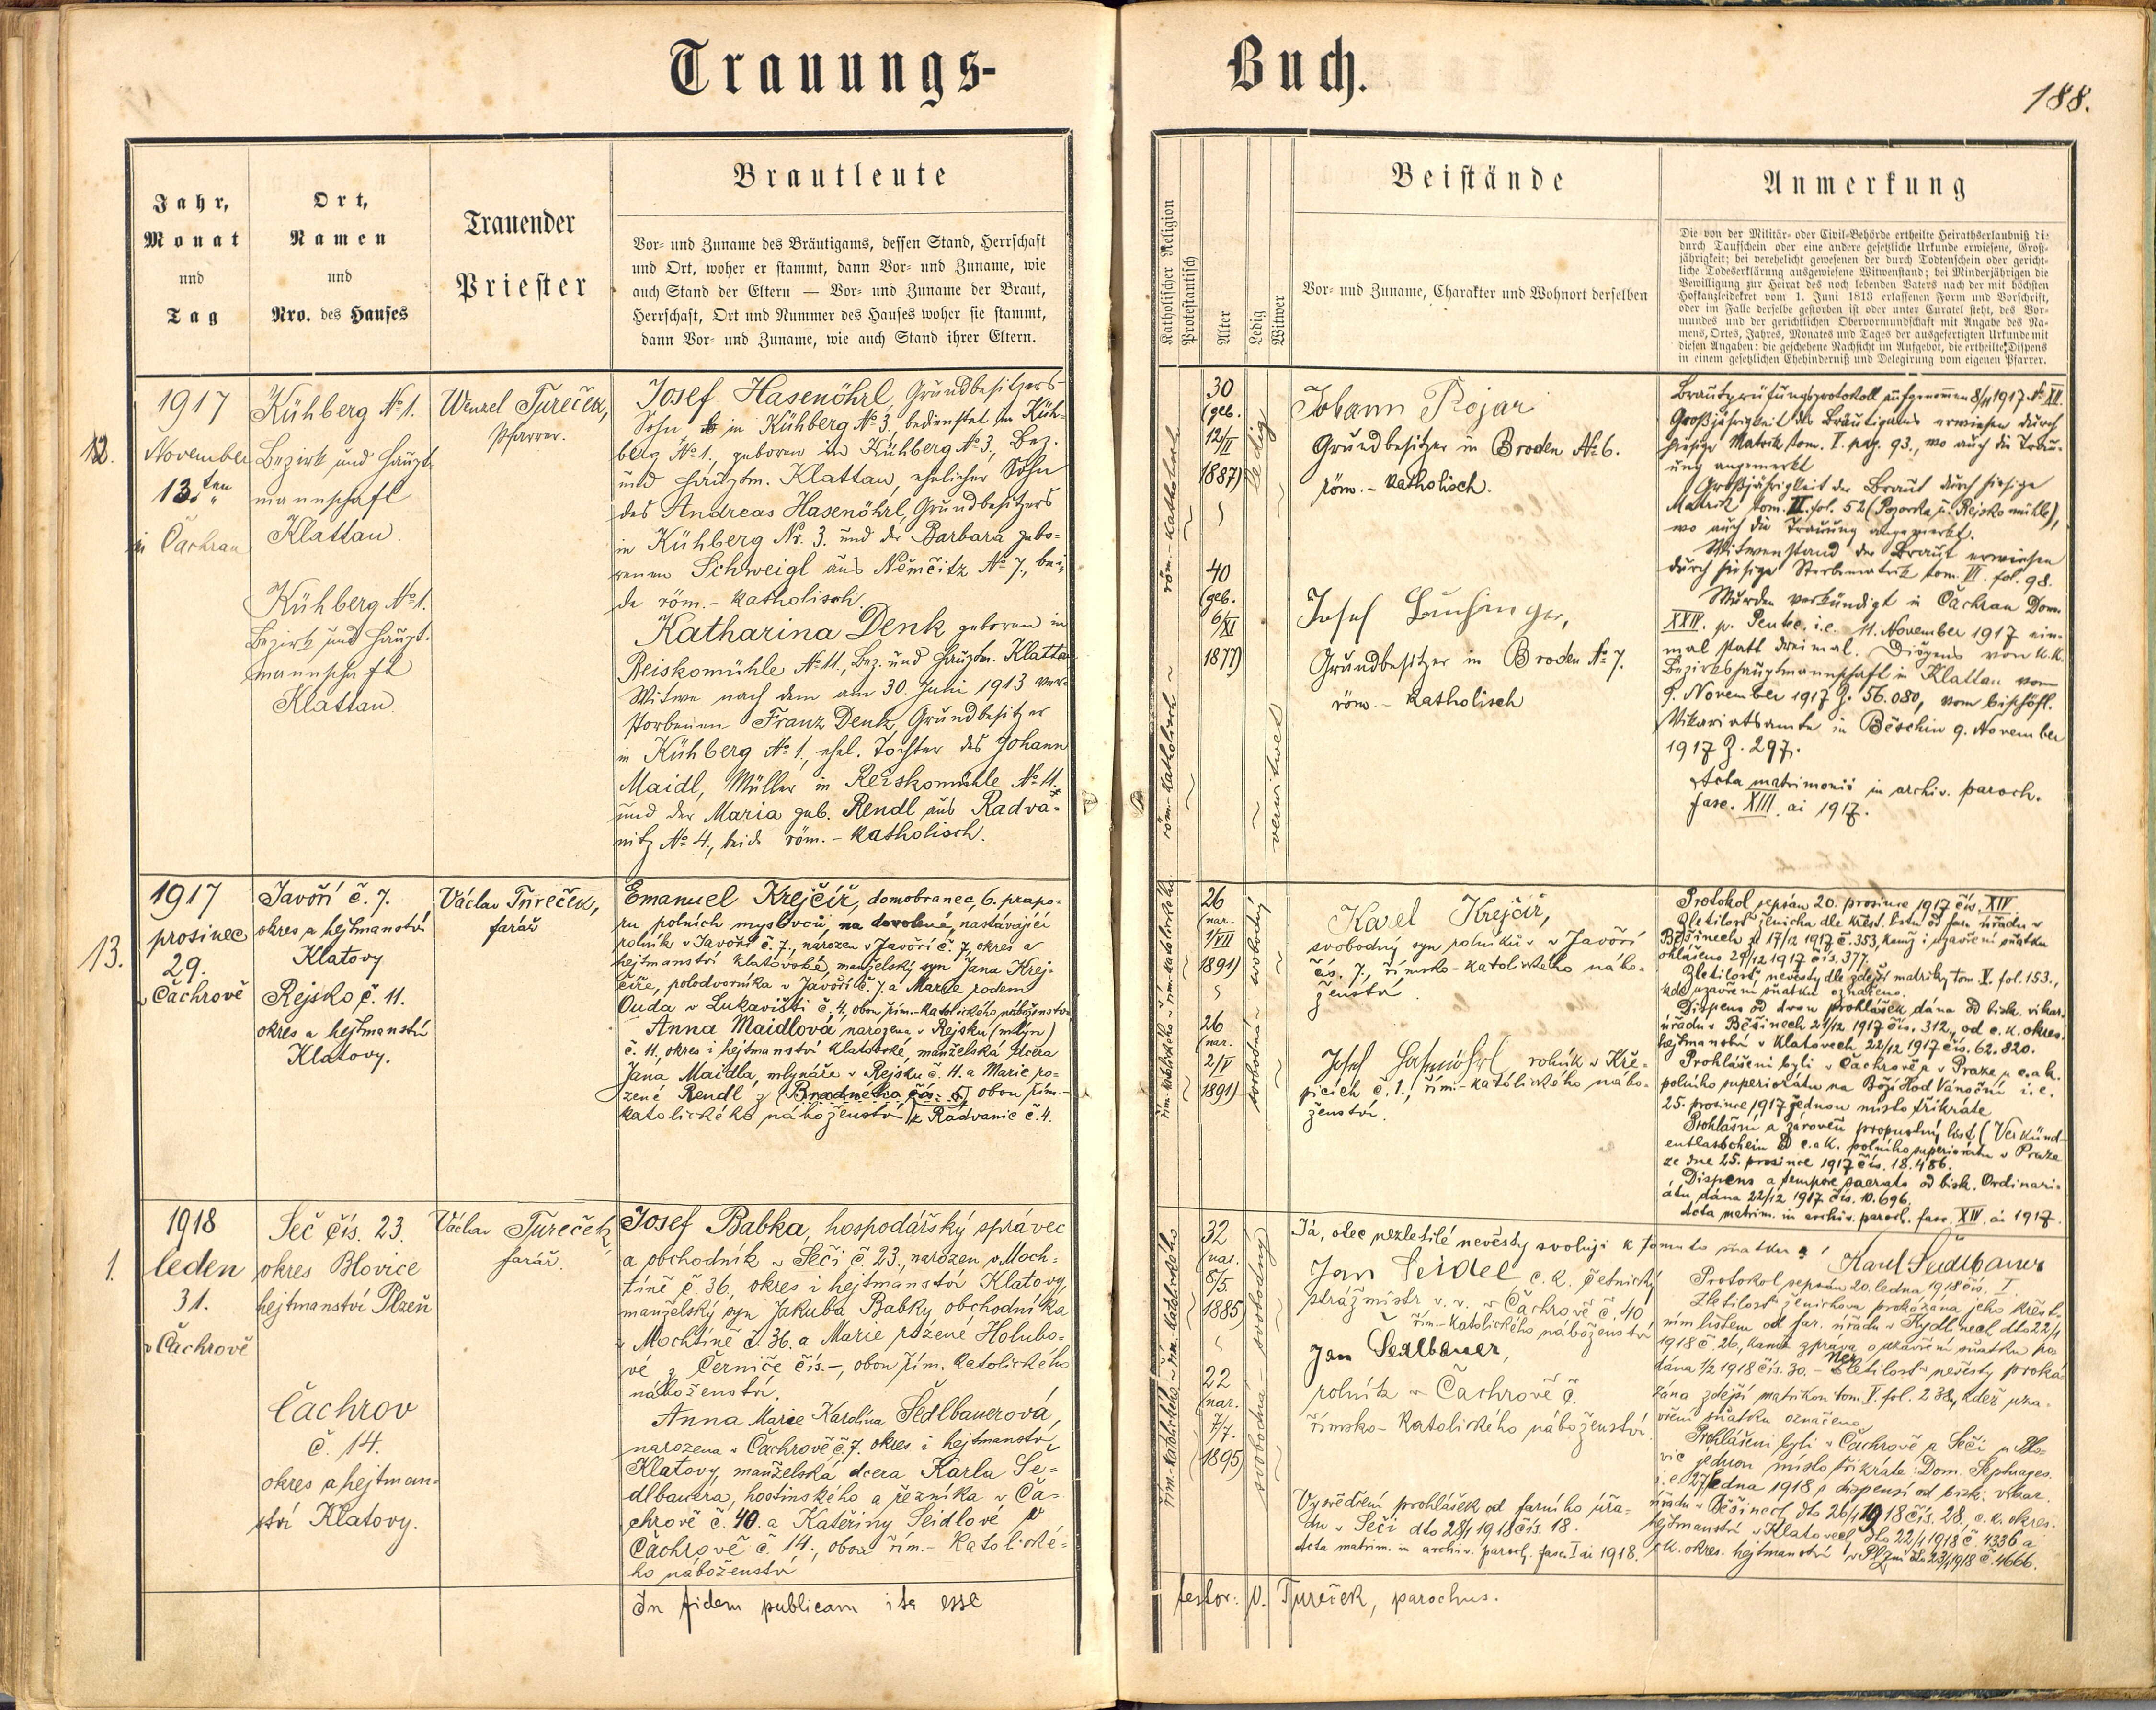 Trauungs-
Buch.
188.
Jahr,
Monat
und
Tag
Ort,
Namen
und
Nro. des Hauses
Trauender
Priester
Brautleute
Vor- und Zuname des Bräutigams, dessen Stand, Herrschaft
und Ort, woher er stammt, dann Vor- und Zuname, wie
auch Stand der Eltern — Vor- und Zuname der Braut,
Herrschaft, Ort und Nummer des Hauses woher sie stammt,
dann Vor- und Zuname, wie auch Stand ihrer Eltern.
Katholischer Religion
Protestantisch
Alter
Ledig
Witwer
Beistände
Vor- und Zuname, Charakter und Wohnort derselben
Anmerkung
Die von der Militär- oder Civil-Behörde ertheilte Heirathserlaubniß di:
durch Taufschein oder eine andere gesetzliche Urkunde erwiesene, Groß-
jährigkeit; bei verehelicht gewesenen der durch Todtenschein oder gericht-
liche Todeserklärung ausgewiesene Witwenstand; bei Minderjährigen die
Bewilligung zur Heirat des noch lebenden Vaters nach der mit höchsten
Hofkanzleidekret vom 1. Juni 1813 erlassenen Form und Vorschrift,
oder im Falle derselbe gestorben ist oder unter Curatel steht, des Vor-
mundes und der gerichtlichen Obervormundschaft mit Angabe des Na-
mens, Ortes, Jahres, Monates und Tages der ausgefertigten Urkunde mit
diesen Angaben: die geschehene Nachsicht im Aufgebot, die ertheilte Dispens
in einem gesetzlichen Ehehinderniß und Delegirung vom eigenen Pfarrer.
12.
1917
November
13.ten
in Čachrau
Kühberg No 1.
Bezirk und Haupt-
mannschaft
Klattau.
Kühberg No 1.
Bezirk und Haupt-
mannschaft
Klattau.
Wenzel Tureček,
Pfarrer.
Josef Hasenöhrl, Grundbesitzers-
Sohn in Kühberg No 3. bedienstet in Küh-
berg No 1., geboren in Kühberg No 3., Bez.
und Hauptm. Klattau, ehelicher Sohn
des Andreas Hasenöhrl, Grundbesitzers
in Kühberg Nr. 3. und der Barbara gebo-
renen Schweigl aus Němčitz No 7., bei-
de röm.-katholisch.
Katharina Denk geboren in
Reiskomühle No 11., Bez. und Hauptm. Klattau
Witwe nach dem am 30. Juni 1913 ver-
storbenen Franz Denk, Grundbesitzer
in Kühberg No 1., ehel. Tochter des Johann
Maidl, Müller in Reiskomühle No 11.
und der Maria geb. Rendl aus Radva-
nitz No 4., beide röm.-katholisch.
röm.-katholisch
röm.-katholisch
30
(geb.
12/II
1887)
40
(geb.
6/XI
1877)
ledig
verwitwet
Johann Rojar
Grundbesitzer in Broden No 6.
röm.-katholisch.
Josef
Grundbesitzer in Broden No 7.
röm.-katholisch
Brautprüfungsprotokoll aufgenommen 8/11 1917 No XII.
Großjährigkeit des Bräutigams erwiesen durch
hiesige Matrik tom. I. pag. 93., wo auch die Trau-
ung angemerkt
Großjährigkeit der Braut durch hiesige
Matrik tom. II. fol. 52 (Pozorka u. Rejskomühle),
wo auch die Trauung angemerkt.
Witwenstand der Braut erwiesen
durch hiesige Sterbematrik tom. VI. fol. 98.
Wurden verkündigt in Čachrau Dom.
XXIV. p. Pentec. i.e. 11. November 1917 ein-
mal statt dreimal. Dispens von k.k.
Bezirkshauptmannschaft in Klattau vom
9. November 1917 Z. 56.080, vom bischöfl.
Vikariatsamte in Běschin 9. November
1917 Z. 297.
Acta matrimonii in archiv. paroch.
fasc. XIII. ai 1917.
13.
1917
prosinec
29.
v Čachrově
Javoří č. 7.
okres a hejtmanství
Klatovy
Rejsko č. 11.
okres a hejtmanství
Klatovy.
Václav Tureček,
farář
Emanuel Krejčíř, domobranec, 6. prapo-
ru polních myslivců, na dovolené, nastávající
rolník v Javoří č. 7., narozen v Javoří č. 7, okres a
hejtmanství klatovské, manželský syn Jana Krej-
číře, polodvorníka v Javoří č. 7. a Marie rodem
Ouda v Lukavišti č. 4, obou řím.-katolického náboženství
Anna Maidlová, narozena v Rejsku (mlýn)
č. 11, okres i hejtmanství klatovské, manželská dcera
Jana Maidla, mlynáře v Rejsku č. 11. a Marie ro-
zené Rendl z (Bradného čís. 5) obou řím.-
katolického náboženství z Radvanic č. 4.
26
(nar.
1/VII
1891)
26
(nar.
2/V
1891)
svobodný
svobodná
Karel Krejčíř,
svobodný syn rolníků v Javoří
čís. 7., římsko-katolického nábo-
ženství.
Josef Hasenöhrl rolník v Kře-
picích č. 1., řím.-katolického nábo-
ženství.
Protokol sepsán 20. prosince 1917 čís. XIV
Zletilost ženicha dle křest. listu od far. úřadu v
Běšinech zd 17/12 1917 č. 353, kamž i uzavření sňatku
ohlášeno 29/12 1917 čís. 377.
Zletilost nevěsty dle zdejší matriky tom. V. fol. 153.,
kde uzavření sňatku označeno.
Dispens od dvou prohlášek dána od bisk. vikar.
úřadu v Běšinech 21/12 1917 čís. 312., od c. k. okres.
hejtmanství v Klatovech 22/12 1917 čís. 62.820.
Prohlášeni byli v Čachrově a v Praze u c. a k.
polního superiorátu na Boží Hod Vánoční i.e.
25. prosince 1917 jednou místo třikráte
Prohlášení a zároveň propustný list (Verkünd-
entlassschein) c. a k. polního superiorátu v Praze
ze dne 25. prosince 1917 čís. 18.486.
Dispens a tempore sacrato od bisk. Ordinari-
átu dána 22/12 1917 čís. 10.696.
Acta matrim. in archiv. paroch. fasc. XIV. ai 1917.
1.
1918
leden
31.
v Čachrově
Seč čís. 23.
okres Blovice
hejtmanství Plzeň
Čachrov
č. 14.
okres a hejtman-
ství Klatovy.
Václav Tureček,
farář.
Josef Babka, hospodářský správec
a obchodník v Seči č. 23., narozen v Moch-
tíně č. 36, okres i hejtmanství Klatovy,
manželský syn Jakuba Babky, obchodníka
v Mochtíně č. 36. a Marie rozené Holubo-
vé z Černiče čís. –, obou řím. katolického
náboženství.
Anna Marie Karolína Sedlbauerová,
narozena v Čachrově č. 7. okres i hejtmanství
Klatovy, manželská dcera Karla Se-
dlbauera, hostinského a řezníka v Ča-
chrově č. 40. a Kateřiny Seidlové z
Čachrově č. 14., obou řím.-katolické-
ho náboženství
32
(nar.
8/5.
1885)
22
(nar.
7/7.
1895)
svobodný
svobodná
Já, otec nezletilé nevěsty svoluji k tomuto sňatku: Karel Sedlbauer
Jan Seidel c. k. četnický
strážmistr v. v. v Čachrově č. 40
řím.-katolického náboženství
Jan Sedlbauer,
rolník v Čachrově č.
římsko-katolického náboženství.
Vysvědčení prohlášek od farního úřa-
du v Seči dto 28/1 1918 čís. 18.
Acta matrim. in archiv. paroch. fasc. I ai 1918.
Protokol sepsán 20. ledna 1918 čís. I.
Zletilost ženichova prokázána jeho křest-
ním listem od far. úřadu v Kydlinech dto 22/1
1918 č. 26, kamž zpráva o uzavření sňatku po-
dána 1/2 1918 čís. 30. – Nezletilost nevěsty proká-
zána zdejší matrikou tom. V. fol. 238, kdež uza-
vření sňatku označeno.
Prohlášeni byli v Čachrově a Seči u Blo-
vic jednou místo třikráte: Dom. Septuages.
i.e. 27. ledna 1918 s dispensí od bisk. vikar.
úřadu v Běšinech dto 26/1 1918 čís. 28., c. k. okres.
hejtmanství v Klatovech dto 22/1 1918 č. 4336 a
c k. okres. hejtmanství v Plzni dto 23/1 1918 č. 4666.
In fidem publicam ita esse
testor: V. Tureček, parochus.